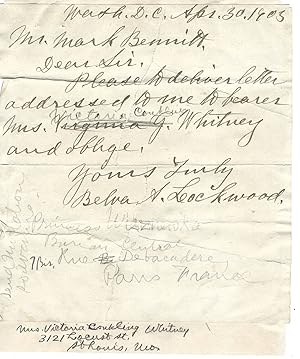 Wash. D.C. Apr. 30, 1903
Mr. Mark Bennitt,
Dear Sir.
Please to deliver letter
addressed to me to bearer
Victoria Conkling
Mrs. Virginia J. Whitney
and oblige.
Yours Truly
Belva A. Lockwood.
Princess
Bureau Central
7 Bis. Rue Debarcadere
Paris France
Mrs Victoria Conkling Whitney
3121 Locust St.
St Louis, Mo